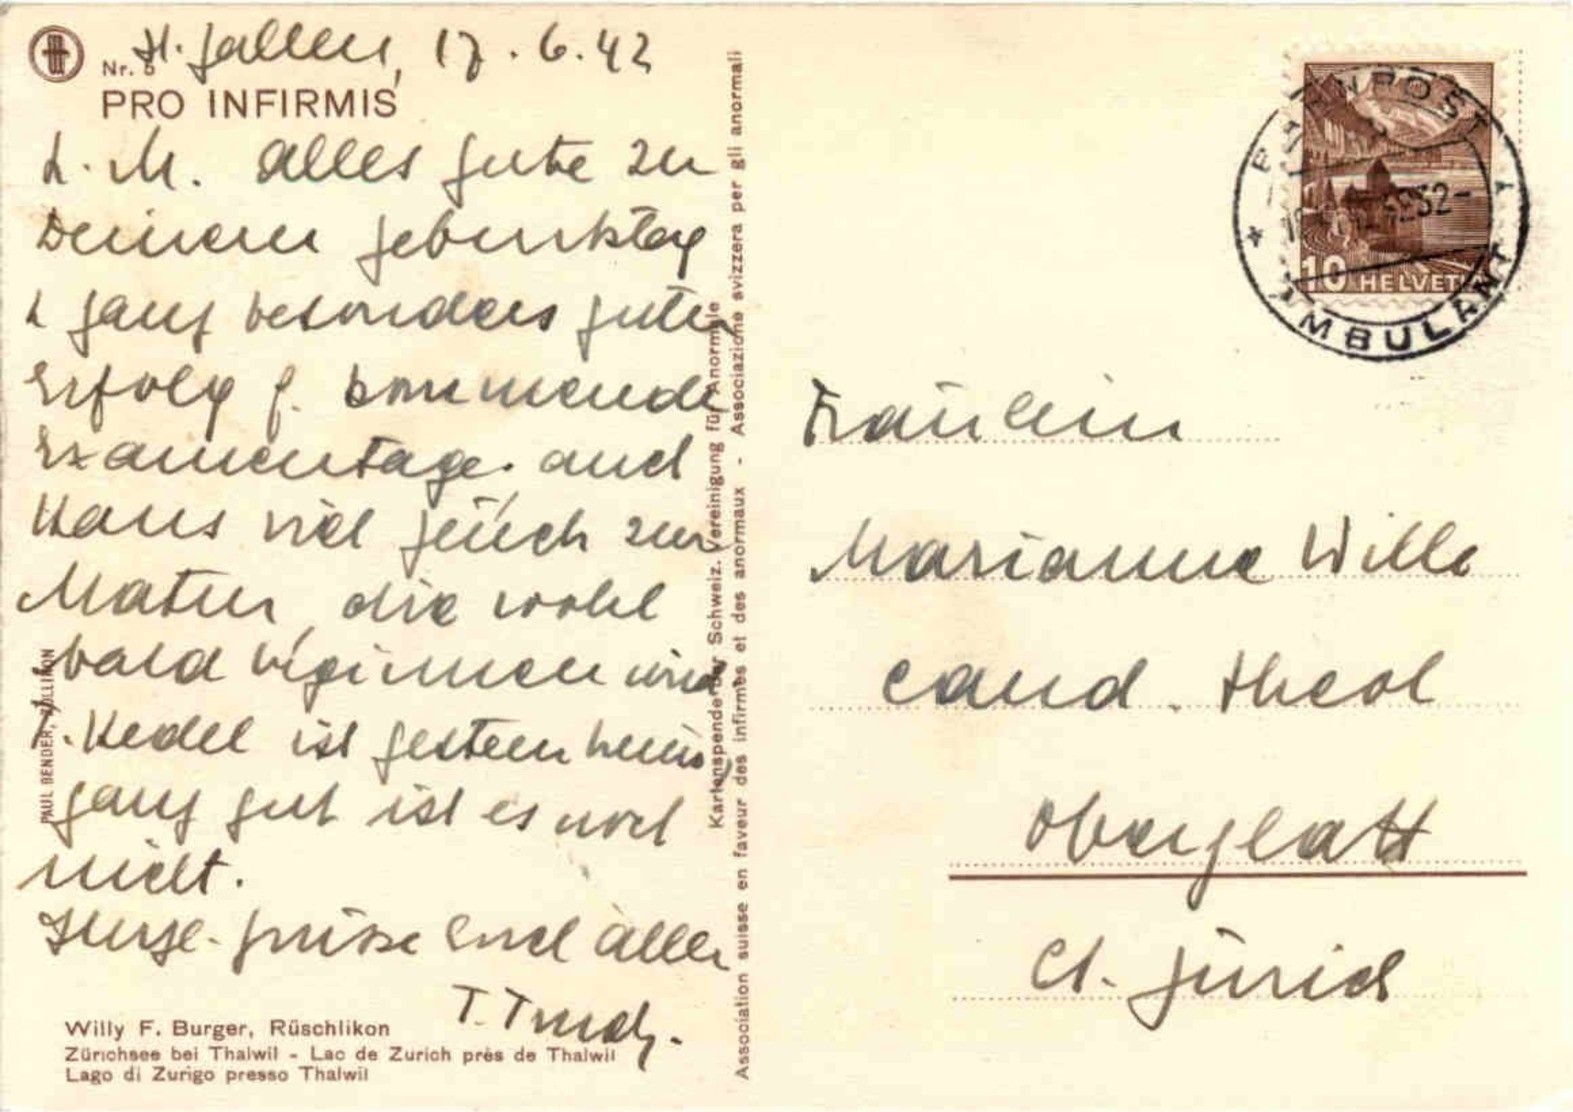 Nr. 5 St. Gallen, 17.6.42
PRO INFIRMIS
L. M. Alles Gute zu
Deinem Geburtstag
& ganz besonders guten
Erfolg f. kommende
Examentage. auch
Hans viel Glück zur
Matur, die wohl
bald beginnen wird
. Hedel ist gestern heim,
ganz gut ist es noch
nicht.
Herzl. Grüsse Euch allen
T. Trudy.
Willy F. Burger, Rüschlikon
Zürichsee bei Thalwil - Lac de Zurich près de Thalwil
Lago di Zurigo presso Thalwil
PAUL BENDER, ZOLLIKON
Kartenspende der Schweiz. Vereinigung für Anormale
Association suisse en faveur des infirmes et des anormaux - Associazione svizzera per gli anormali
BAHNPOST
AMBULANT
10 HELVETIA
Fräulein
Marianne Wille
cand. theol
Oberglatt
Ct. Zürich